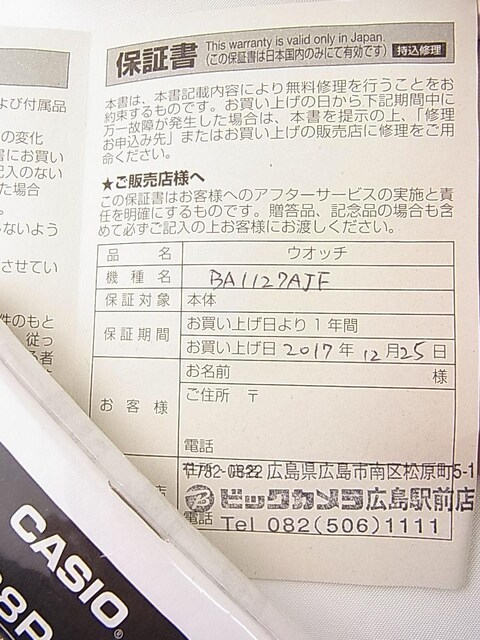 保証書 This warranty is valid only in Japan.
(この保証書は日本国内のみにて有効です) 持込修理
本書は、本書記載内容により無料修理を行うことをお
約束するものです。お買い上げの日から下記期間中に
万一故障が発生した場合は、本書を提示の上、「修理
お申込み先」またはお買い上げの販売店に修理をご用
命ください。
★ご販売店様へ
この保証書はお客様へのアフターサービスの実施と責
任を明確にするものです。贈答品、記念品の場合も含
めて必ずご記入の上お客様にお渡しください。
品名 ウオッチ
機種名 BA1127AJF
保証対象 本体
保証期間 お買い上げ日より1年間
お買い上げ日 2017年 12月25日
お客様 お名前 様
ご住所 〒
電話
広島県広島市南区松原町5-1
店 ビックカメラ広島駅前店
電話 Tel 082(506)1111
よび付属品
の変化
書にお買い
記入のない
た場合
ないよう
させてい
件のもと
従っ
る者
CASIO